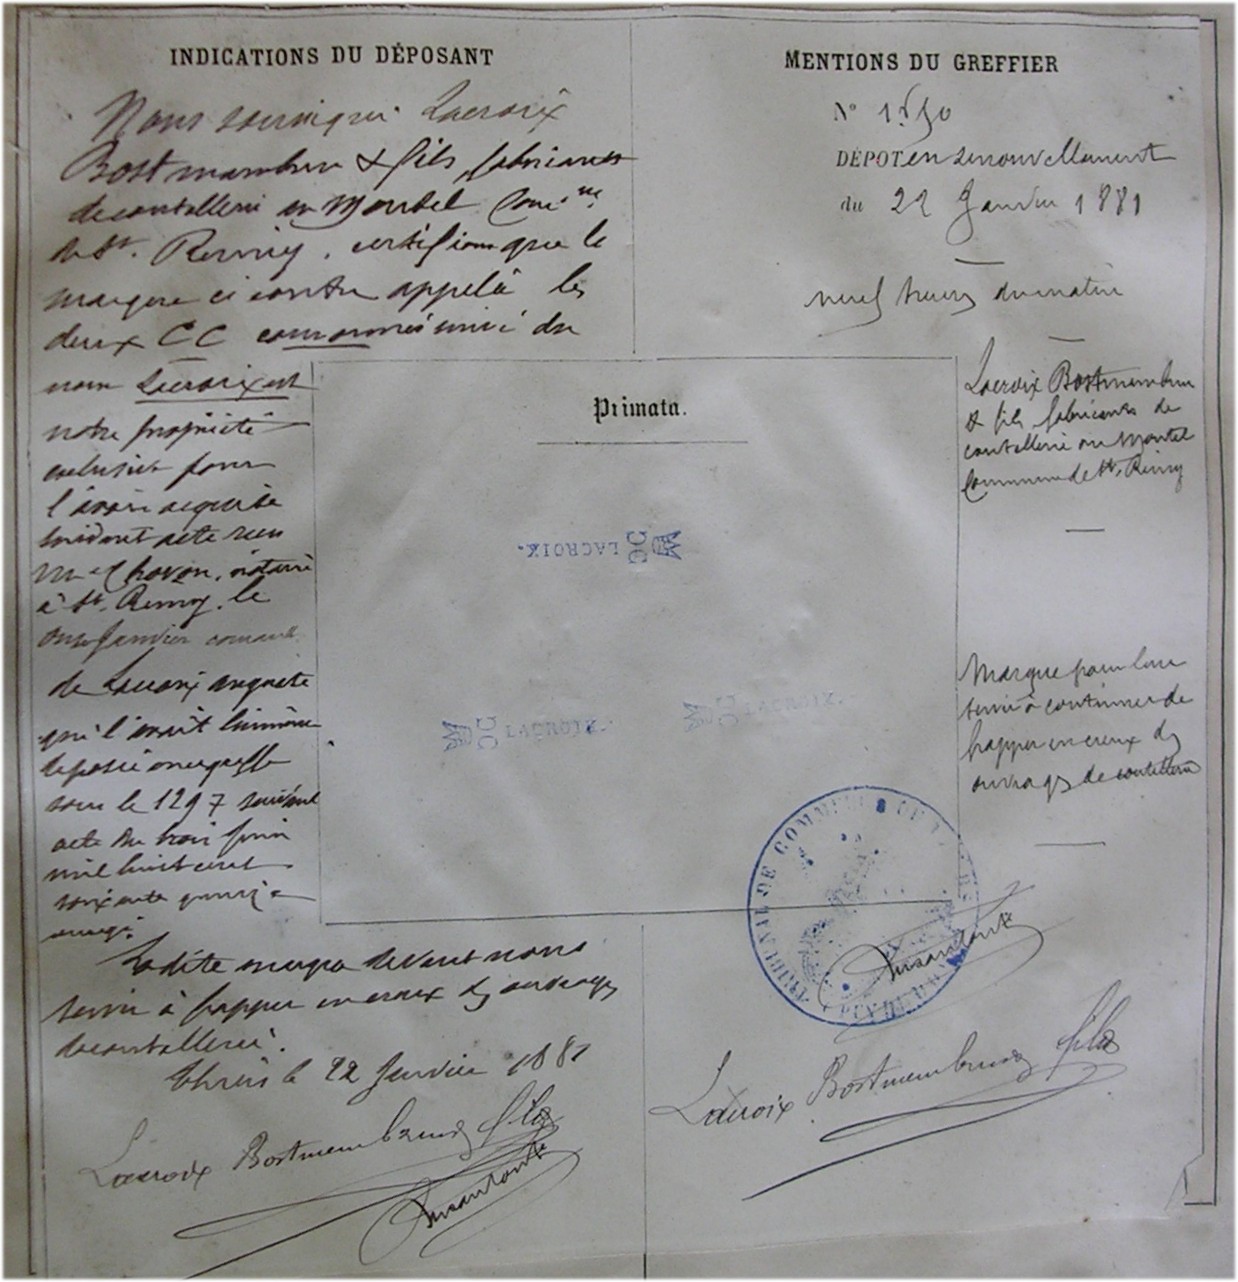 INDICATIONS DU DÉPOSANT
Nous soussignés Lacroix
Bostmambrun & fils fabricants
de coutellerie au Montel Comne
de St. Remy, certifions que la
marque ci contre appelée les
deux CC couronnés suivi du
nom Lacroix est
notre propriété
exclusive pour
l'avoir acquise
suivant acte reçu
Me Chovon, notaire
à St. Remy, le
onze Janvier courant
de Lacroix
qui l'avait lui même
déposée
sous le 1297 suivant
acte du trois juin
mil huit cent
soixante quinze
Ladite marque devant nous
servir à frapper en creux des ouvrages
de coutellerie.
Thiers le 22 Janvier 1881
Lacroix Bostmembrun fils
MENTIONS DU GREFFIER
N°
DÉPOT en renouvellement
du 22 Janvier 1881
neuf heures du matin
Lacroix Bostmembrun
& fils fabricants de
coutellerie au Montel
Commune de St. Remy
Marque pour leur
servir à continuer de
frapper en creux des
ouvrages de coutellerie
Primata.
CC LACROIX.
CC LACROIX.
CC LACROIX.
TRIBUNAL DE COMMERCE DE THIERS
Lacroix Bostmembrun fils